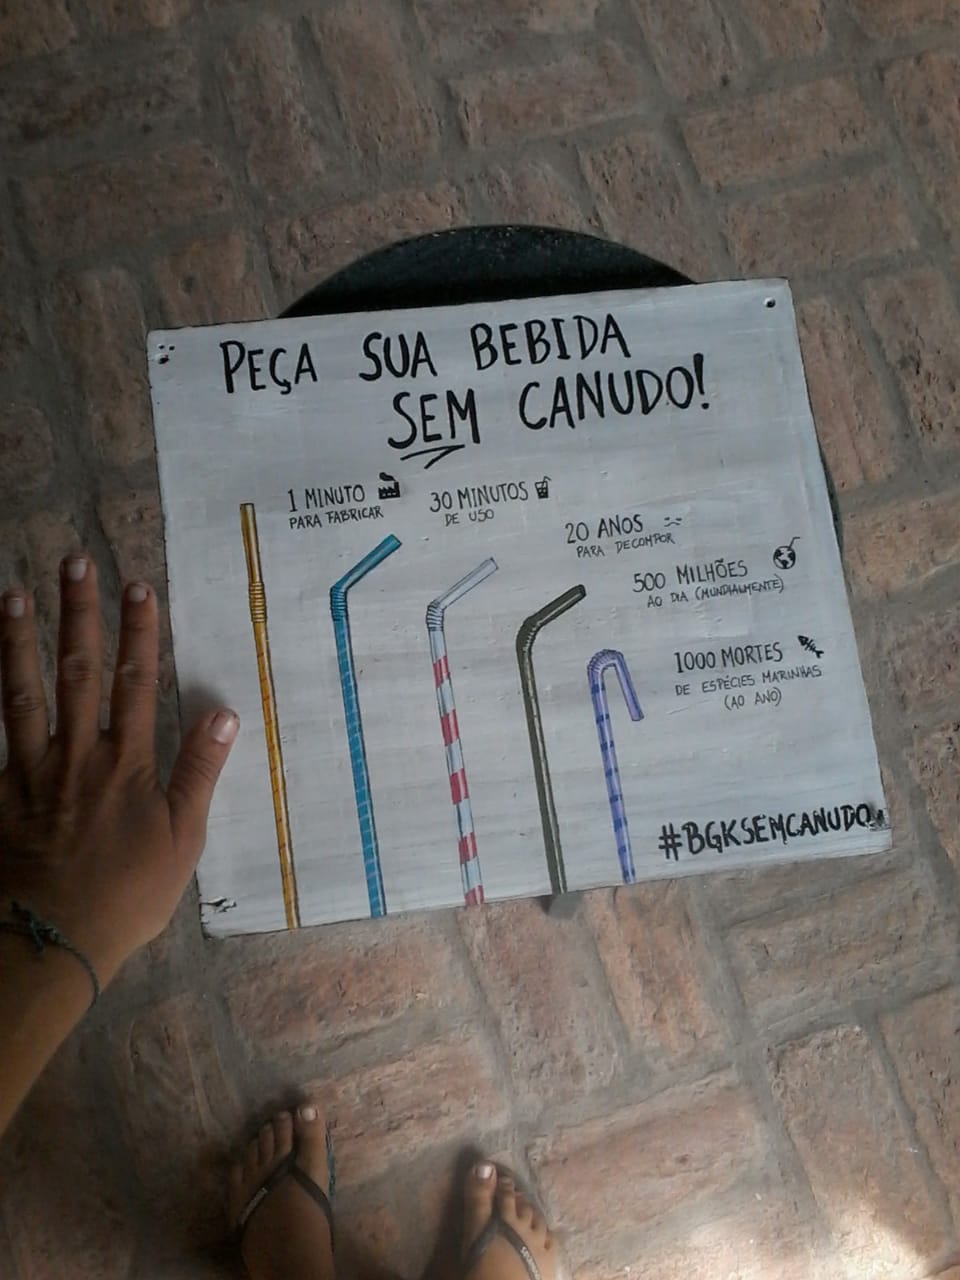 PEÇA SUA BEBIDA
SEM CANUDO!
1 MINUTO
PARA FABRICAR
30 MINUTOS
DE USO
20 ANOS
PARA DECOMPOR
500 MILHÕES
AO DIA (MUNDIALMENTE)
1000 MORTES
DE ESPÉCIES MARINHAS
(AO ANO)
#BGKSEMCANUDO